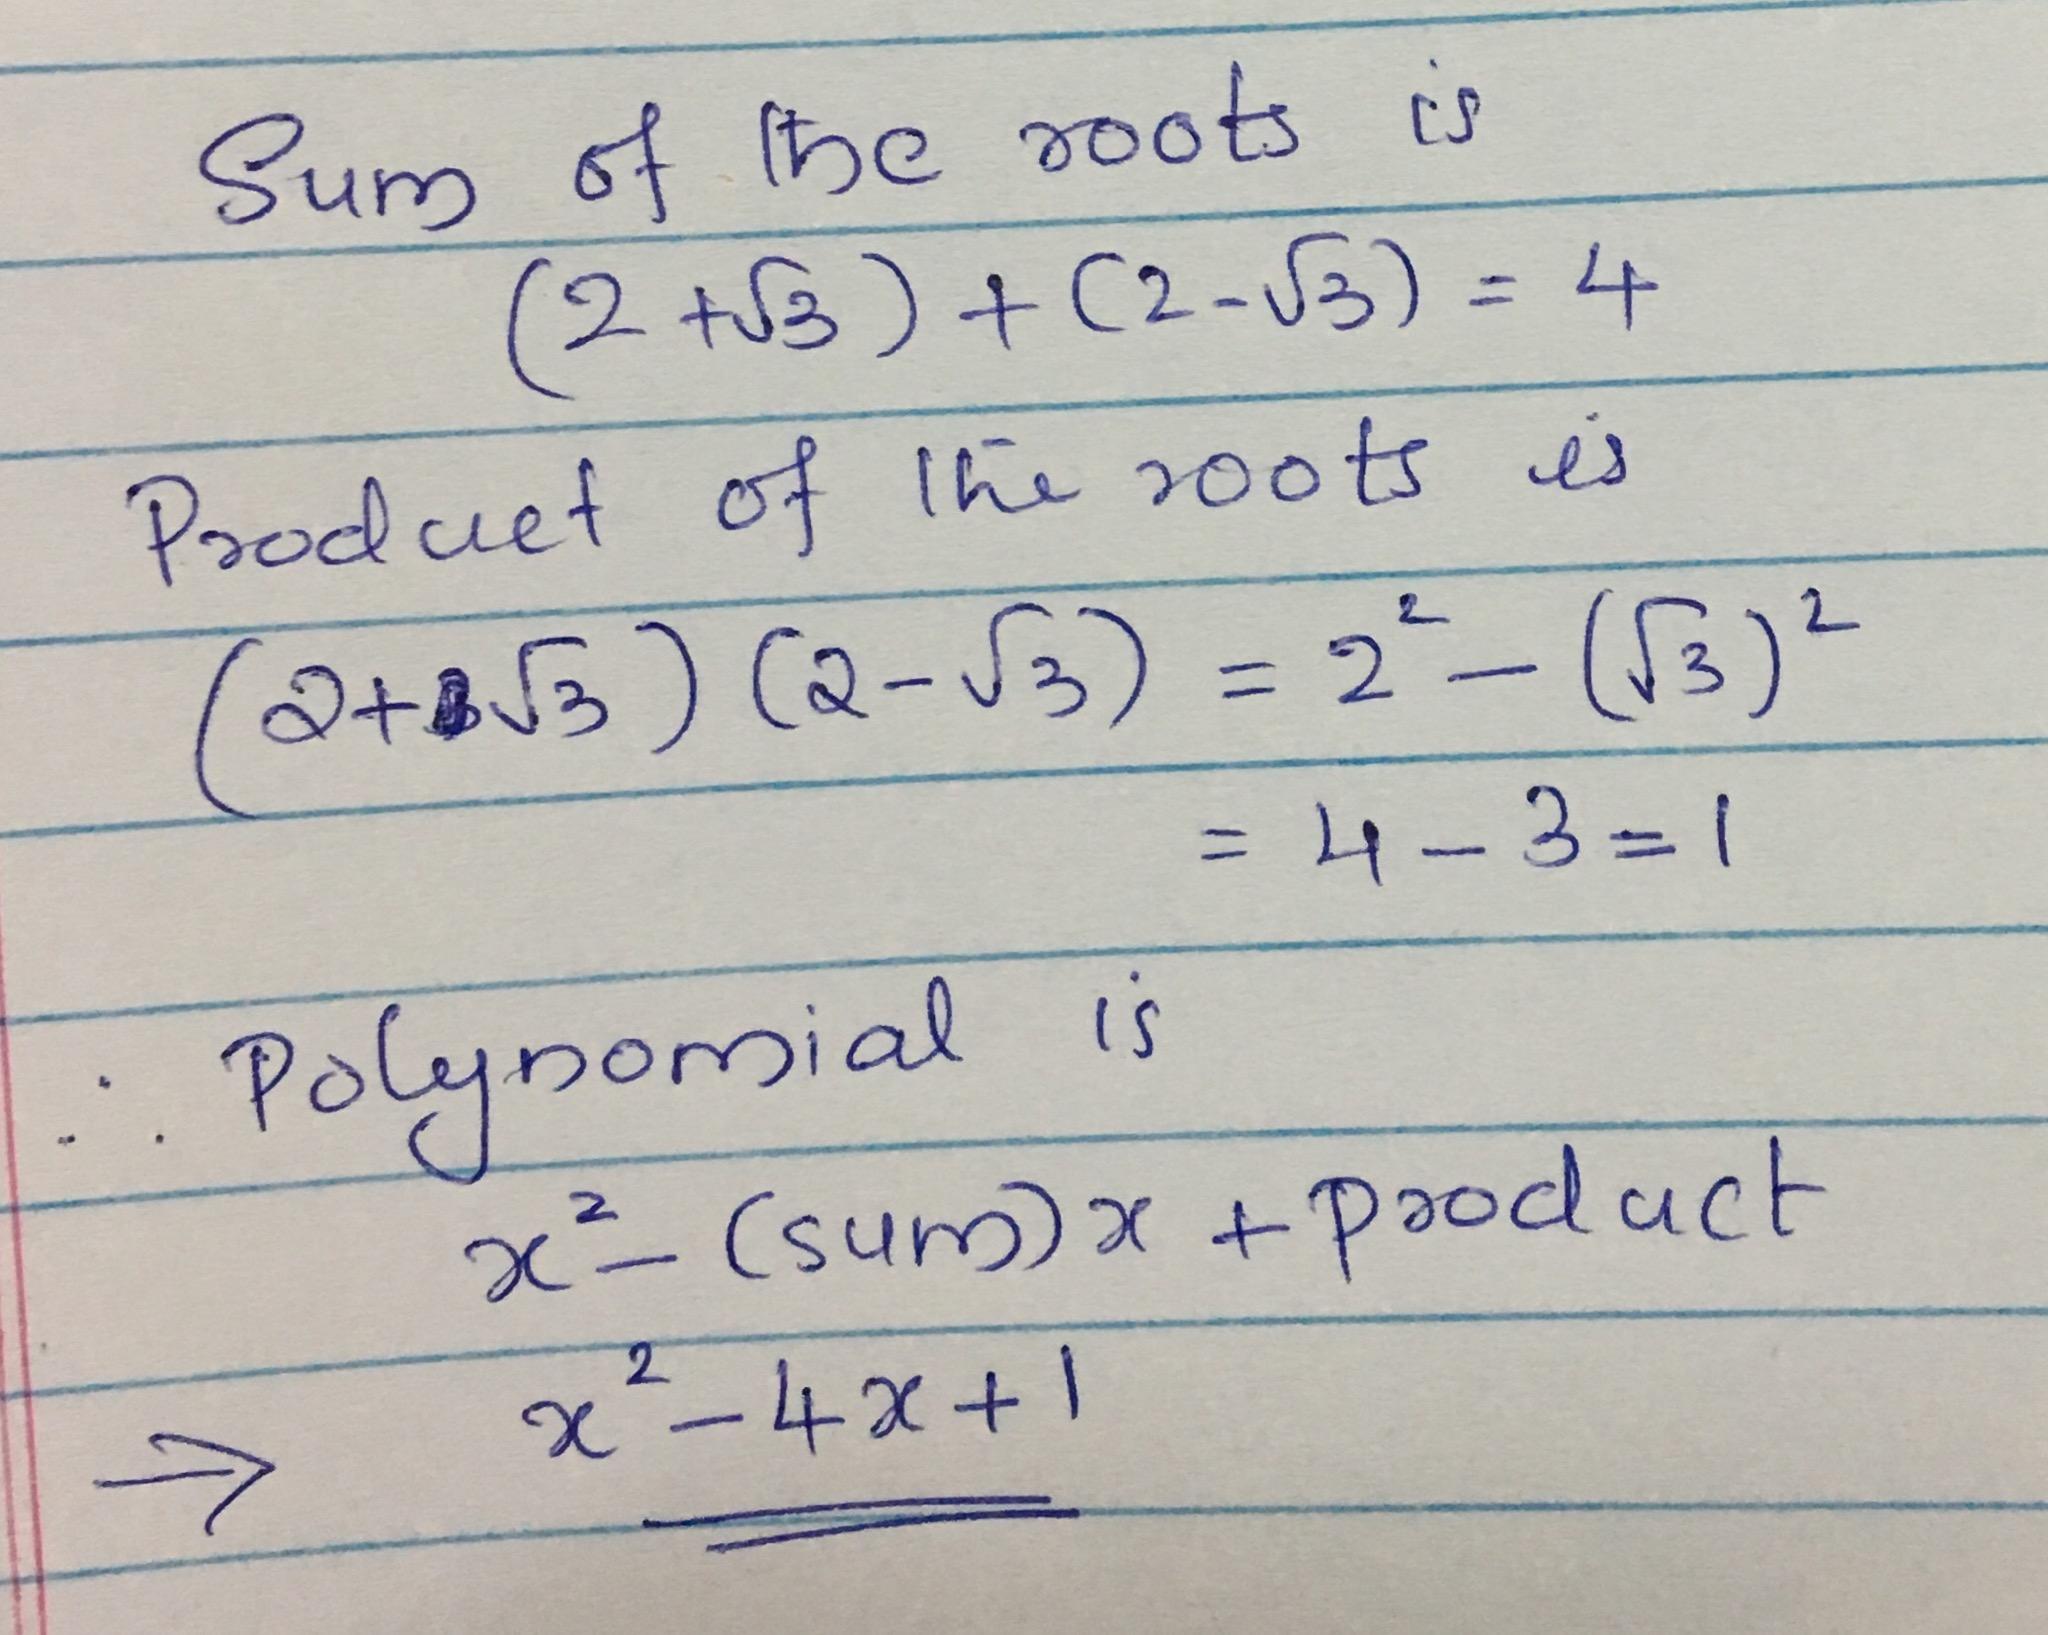 Sum of the roots is
(2+√3) + (2-√3) = 4
Product of the roots is
(2+√3) (2-√3) = 2² - (√3)²
= 4 - 3 = 1
∴ Polynomial is
x² - (sum)x + product
⇒ x² - 4x + 1